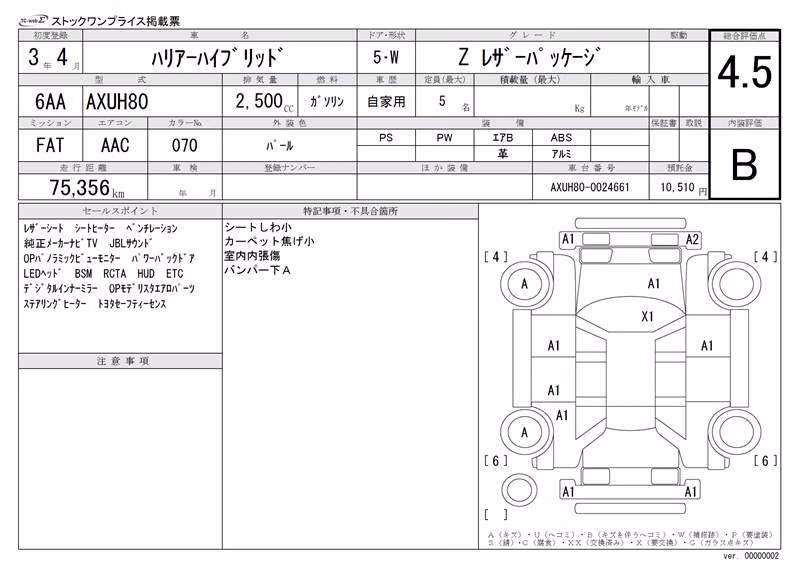 TC-webΣ ストックワンプライス掲載票
初度登録 車名 ドア・形状 グレード 駆動 総合評価点
3年 4月 ﾊﾘｱｰﾊｲﾌﾞﾘｯﾄﾞ 5・W Z ﾚｻﾞｰﾊﾟｯｹｰｼﾞ 4.5
型式 排気量 燃料 車歴 定員(最大) 積載量(最大) 輸入車
6AA AXUH80 2,500CC ｶﾞｿﾘﾝ 自家用 5名 Kg 年ﾓﾃﾞﾙ
ミッション エアコン カラーNo. 外装色 装備 保証書 取説 内装評価
FAT AAC 070 ﾊﾟｰﾙ PS PW ｴｱB ABS B
革 ｱﾙﾐ
走行距離 車検 登録ナンバー ほか装備 車台番号 預託金
75,356km 年 月 AXUH80-0024661 10,510円
セールスポイント
ﾚｻﾞｰｼｰﾄ ｼｰﾄﾋｰﾀｰ ﾍﾞﾝﾁﾚｰｼｮﾝ
純正ﾒｰｶｰﾅﾋﾞTV JBLｻｳﾝﾄﾞ
OPﾊﾟﾉﾗﾐｯｸﾋﾞｭｰﾓﾆﾀｰ ﾊﾟﾜｰﾊﾞｯｸﾄﾞｱ
LEDﾍｯﾄﾞ BSM RCTA HUD ETC
ﾃﾞｼﾞﾀﾙｲﾝﾅｰﾐﾗｰ OPﾓﾃﾞﾘｽﾀｴｱﾛﾊﾟｰﾂ
ｽﾃｱﾘﾝｸﾞﾋｰﾀｰ ﾄﾖﾀｾｰﾌﾃｨｰｾﾝｽ
注意事項
特記事項・不具合箇所
シートしわ小
カーペット焦げ小
室内内張傷
バンパー下A
A1 A2
[4] [4]
A A1
X1
A1 A1
A1
A1
A
[6] [6]
A1 A1
[ ]
A(キズ)・U(ヘコミ)・B(キズを伴うヘコミ)・W(補修跡)・P(要塗装)
S(錆)・C(腐食)・XX(交換済み)・X(要交換)・G(ガラス点キズ)
ver. 00000002